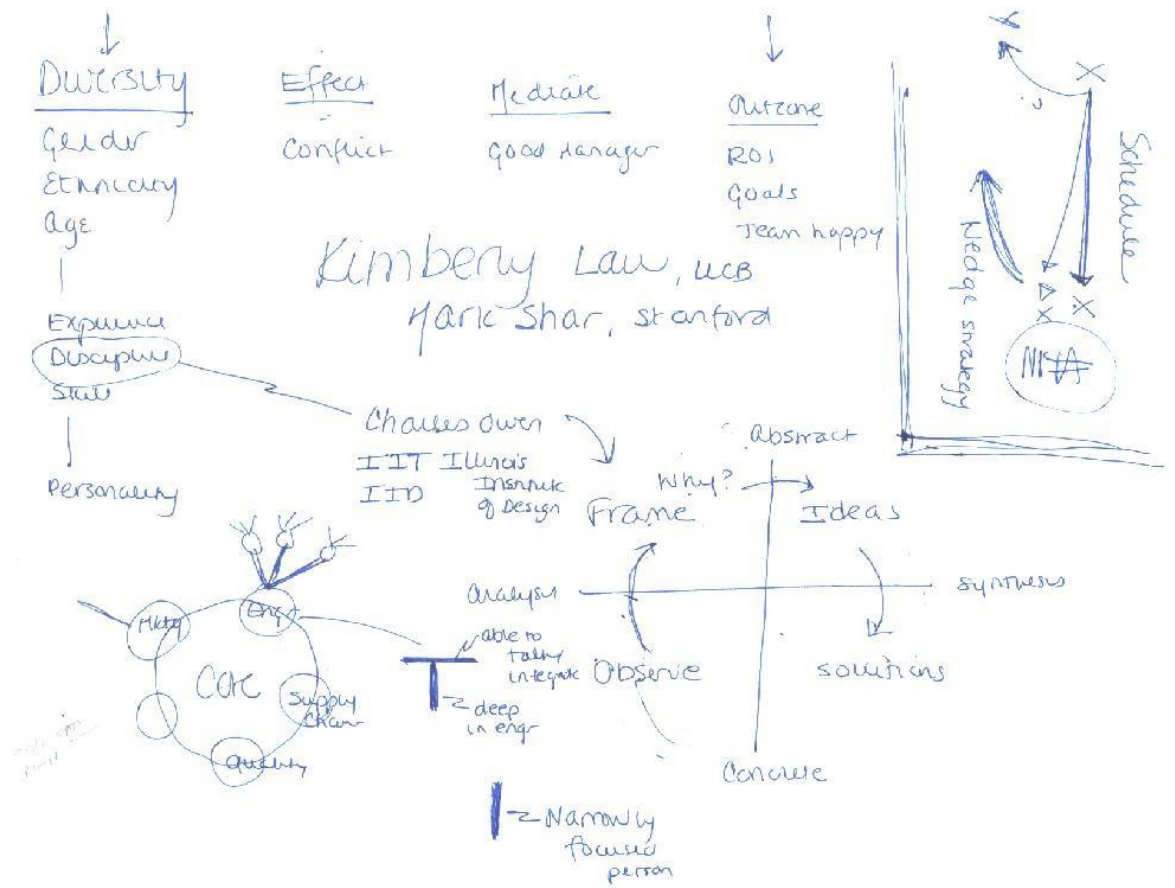 Diversity
Gender
Ethnicity
Age
Experience
Discipline
Skill
Personality
Effect
Conflict
Mediate
Good Manager
Outcome
ROI
Goals
Team happy
Kimberly Law, UCB
Mark Shar, Stanford
Y
X
?
Schedule
Wedge strategy
X
X
Charles Owen
IIT Illinois
IID Institute
of Design
Abstract
Why?
Frame
Ideas
Analysis
Synthesis
Observe
Solutions
Concrete
Mktg
Engr
Core
Supply
Chain
Quality
able to
talk,
integrate
deep
in engr
Narrowly
focused
person